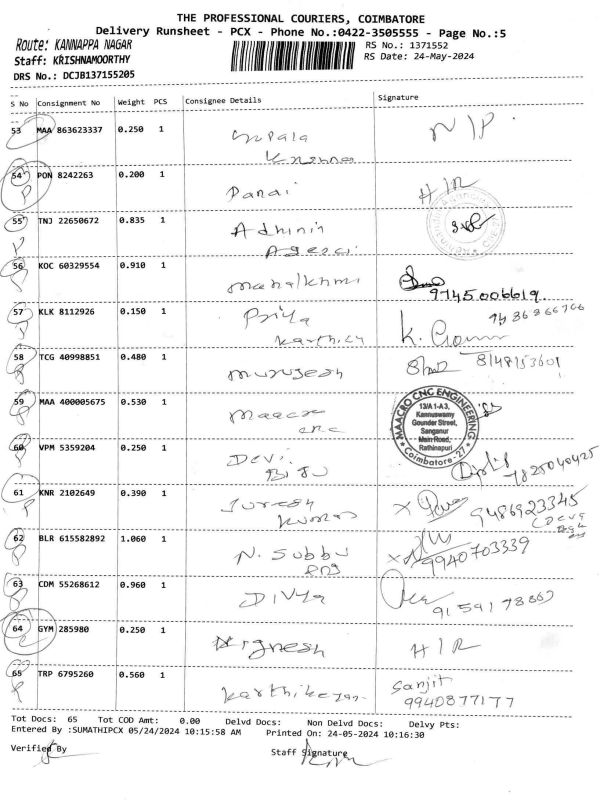 THE PROFESSIONAL COURIERS, COIMBATORE
Delivery Runsheet - PCX - Phone No.:0422-3505555 - Page No.:5
Route: KANNAPPA NAGAR
RS No.: 1371552
Staff: KRISHNAMOORTHY
RS Date: 24-May-2024
DRS No.: DCJB137155205
S No Consignment No Weight PCS Consignee Details Signature
53 MAA 863623337 0.250 1 N/P
54 PON 8242263 0.200 1 H/R
P
55 TNJ 22650672 0.835 1 Adhinin
P
56 KOC 60329554 0.910 1 mahalkhmi
9745006619
57 KLK 8112926 0.150 1 Priya
karthick
58 TCG 40998851 0.480 1 murugesh 8148153601
59 MAA 400005675 0.530 1 maacro
cnc
MAACRO CNC ENGINEERING
13/A1-A3,
Kannuswamy
Gounder Street,
Sanganur
Main Road,
Rathinapuri
Coimbatore-27
60 VPM 5359204 0.250 1 Devi
7825040425
61 KNR 2102649 0.390 1 Suresh
kumar
9486923345
62 BLR 615582892 1.060 1 N. Subbu
eng
9940703339
63 CDM 55268612 0.960 1 Divya
64 GYM 285980 0.250 1 Vignesh H/R
65 TRP 6795260 0.560 1 karthikeyan Sanjit
9940877177
Tot Docs: 65 Tot COD Amt: 0.00 Delvd Docs: Non Delvd Docs: Delvy Pts:
Entered By :SUMATHIPCX 05/24/2024 10:15:58 AM Printed On: 24-05-2024 10:16:30
Verified By Staff Signature